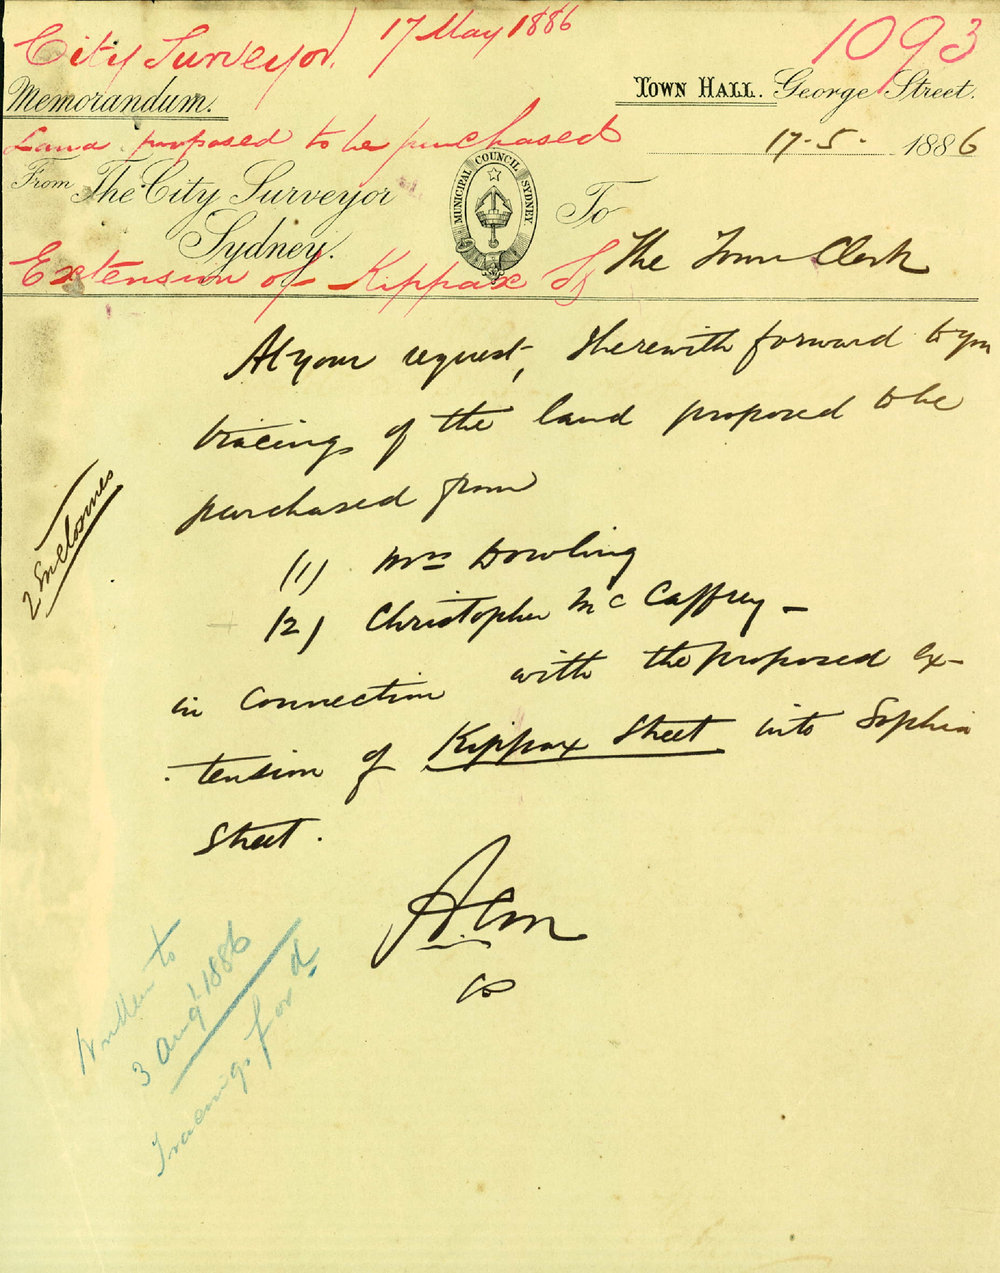 City Surveyor, 17 May 1886
1093
Memorandum.
TOWN HALL. George Street.
Land proposed to be purchased
17.5. 1886
From The City Surveyor
Sydney.
MUNICIPAL COUNCIL SYDNEY
To
The Town Clerk
Extension of Kippax St
At your request, I herewith forward to you
tracings of the land proposed to be
purchased from
2 Enclosures
(1) Mrs Dowling
(2) Christopher McCaffrey -
in connection with the proposed ex-
tension of Kippax Street into Sophia
Street.
CS
Written to
3 Augt 1886
Tracings ford